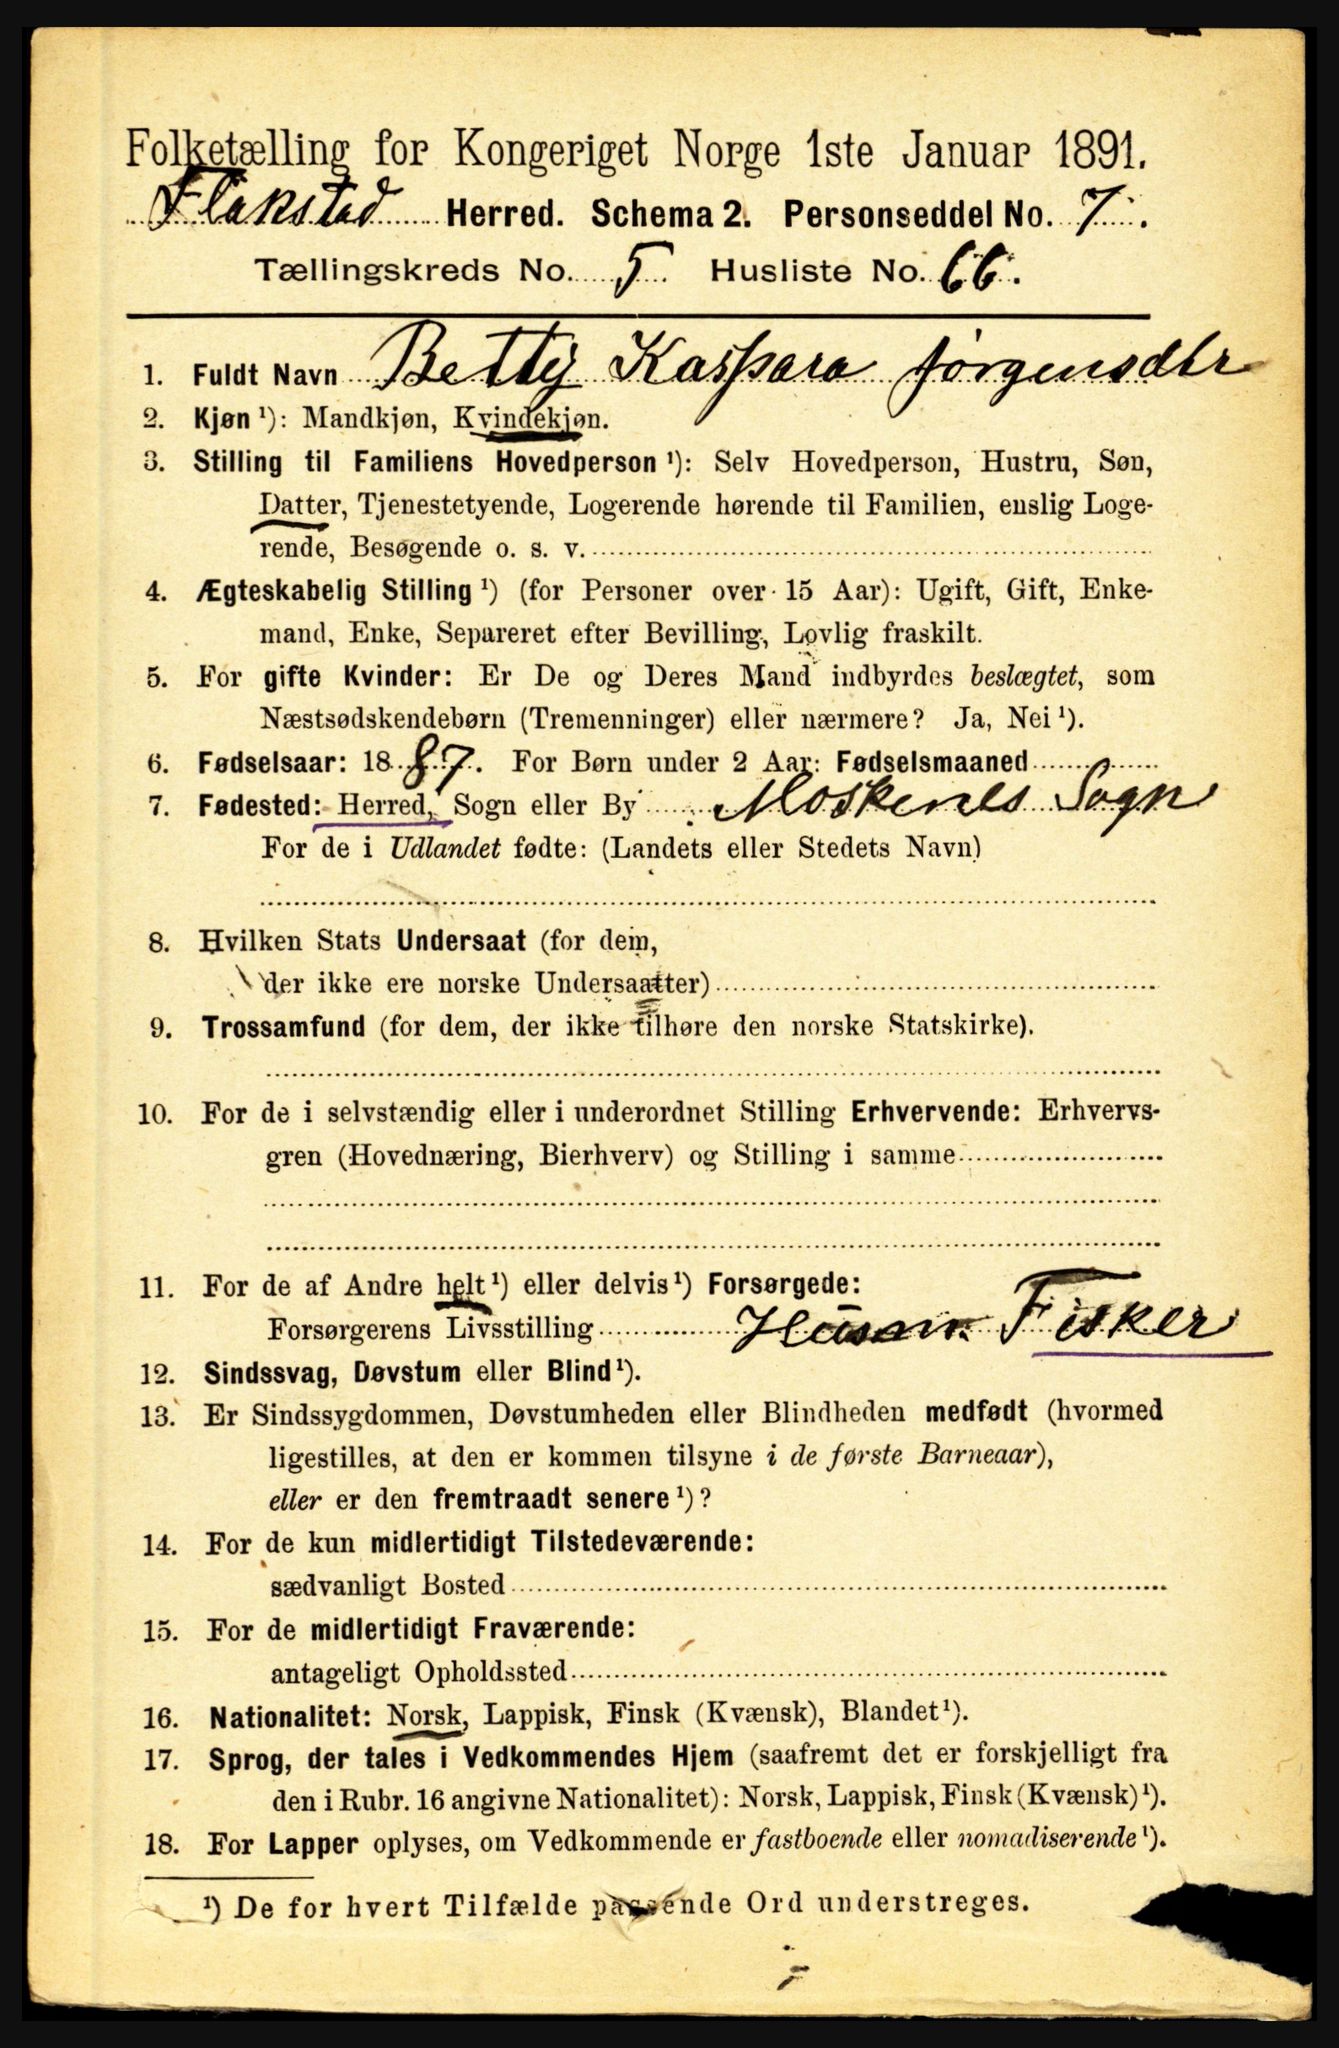 Folketælling for Kongeriget Norge 1ste Januar 1891.
Flakstad Herred. Schema 2. Personseddel No. 7.
Tællingskreds No. 5 Husliste No. 66.
1. Fuldt Navn Betty Kaspara Jørgensdtr
2. Kjøn ¹): Mandkjøn, Kvindekjøn.
3. Stilling til Familiens Hovedperson ¹): Selv Hovedperson, Hustru, Søn,
Datter, Tjenestetyende, Logerende hørende til Familien, enslig Loge-
rende, Besøgende o. s. v.
4. Ægteskabelig Stilling ¹) (for Personer over 15 Aar): Ugift, Gift, Enke-
mand, Enke, Separeret efter Bevilling, Lovlig fraskilt.
5. For gifte Kvinder: Er De og Deres Mand indbyrdes beslægtet, som
Næstsødskendebørn (Tremenninger) eller nærmere? Ja, Nei ¹).
6. Fødselsaar: 1887. For Børn under 2 Aar: Fødselsmaaned
7. Fødested: Herred, Sogn eller By Moskenes Sogn
For de i Udlandet fødte: (Landets eller Stedets Navn)
8. Hvilken Stats Undersaat (for dem,
der ikke ere norske Undersaatter)
9. Trossamfund (for dem, der ikke tilhøre den norske Statskirke).
10. For de i selvstændig eller i underordnet Stilling Erhvervende: Erhvervs-
gren (Hovednæring, Bierhverv) og Stilling i samme
11. For de af Andre helt ¹) eller delvis ¹) Forsørgede:
Forsørgerens Livsstilling Husm. Fisker
12. Sindssvag, Døvstum eller Blind ¹).
13. Er Sindssygdommen, Døvstumheden eller Blindheden medfødt (hvormed
ligestilles, at den er kommen tilsyne i de første Barneaar),
eller er den fremtraadt senere ¹)?
14. For de kun midlertidigt Tilstedeværende:
sædvanligt Bosted
15. For de midlertidigt Fraværende:
antageligt Opholdssted
16. Nationalitet: Norsk, Lappisk, Finsk (Kvænsk), Blandet ¹).
17. Sprog, der tales i Vedkommendes Hjem (saafremt det er forskjelligt fra
den i Rubr. 16 angivne Nationalitet): Norsk, Lappisk, Finsk (Kvænsk) ¹).
18. For Lapper oplyses, om Vedkommende er fastboende eller nomadiserende ¹).
¹) De for hvert Tilfælde passende Ord understreges.